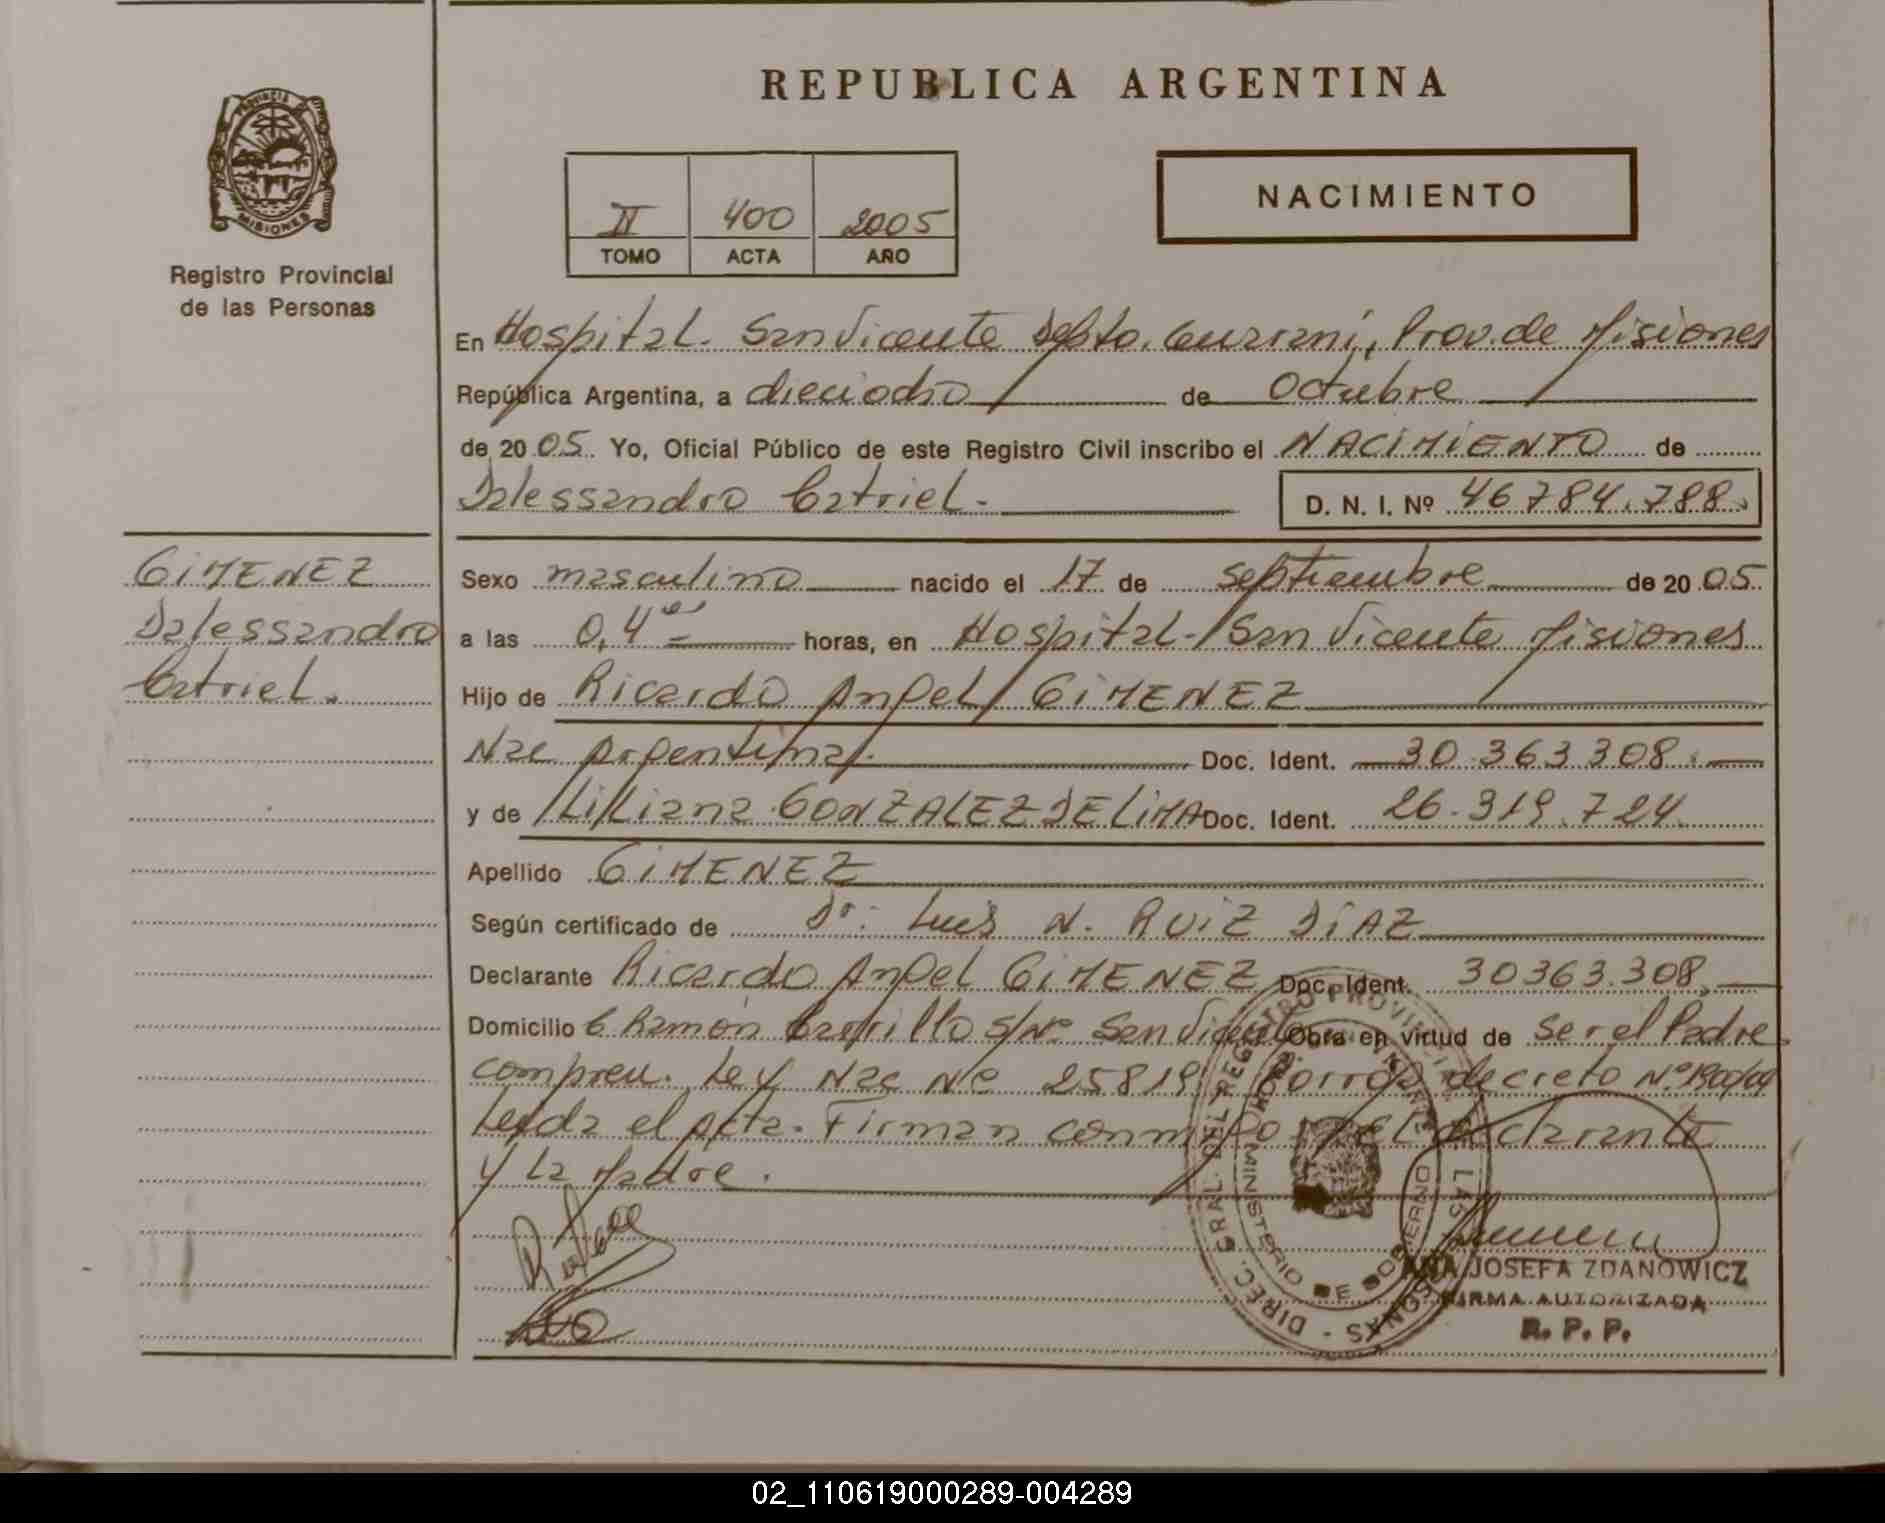 REPUBLICA ARGENTINA
PROVINCIA
MISIONES
Registro Provincial
de las Personas
II 400 2005
TOMO ACTA AÑO
NACIMIENTO
En Hospital. San Vicente Depto. Guarani, Prov. de Misiones
República Argentina, a dieciocho de Octubre
de 2005. Yo, Oficial Público de este Registro Civil inscribo el NACIMIENTO de
Dalessandro Catriel.
D. N. I. Nº 46784.788.
GIMENEZ
Dalessandro
Catriel.
Sexo masculino nacido el 17 de Septiembre de 2005.
a las 0,4 horas, en Hospital- San Vicente Misiones
Hijo de Ricardo Angel GIMENEZ
Nac Argentina. Doc. Ident. 30.363.308.
y de Liliana GONZALEZ DE LIMA Doc. Ident. 26.319.724
Apellido GIMENEZ
Según certificado de Dr: Luis N. RUIZ DIAZ
Declarante Ricardo Angel GIMENEZ Doc. Ident. 30363.308.
Domicilio C Ramón Carrillo s/Nº San Vicente Obra en virtud de Ser el Padre
compren. Ley Nac Nº 25819 decreto Nº
Leyda el Acta. Firman conmigo el declarante
y La Madre.
DIREC. GRAL. DEL REGISTRO PROVINCIAL DE LAS PERSONAS
MINISTERIO DE GOBIERNO
ANA JOSEFA ZDANOWICZ
FIRMA AUTORIZADA
R. P. P.
02_110619000289-004289